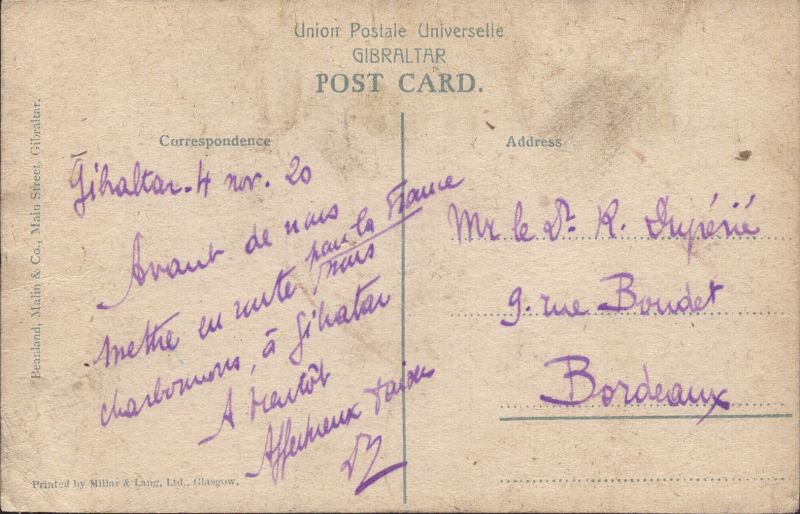 Union Postale Universelle
GIBRALTAR
POST CARD.
Correspondence
Address
Beanland, Malin & Co., Main Street, Gibraltar.
Gibaltar. 4 nov. 20
Avant de nous
mettre en route pour la France
nous
charbonnons, à Gibaltar
A bientôt
Affectueux
Mr le Dr. R. Dupérié
9. rue Boudet
Bordeaux
Printed by Millar & Lang, Ltd., Glasgow.